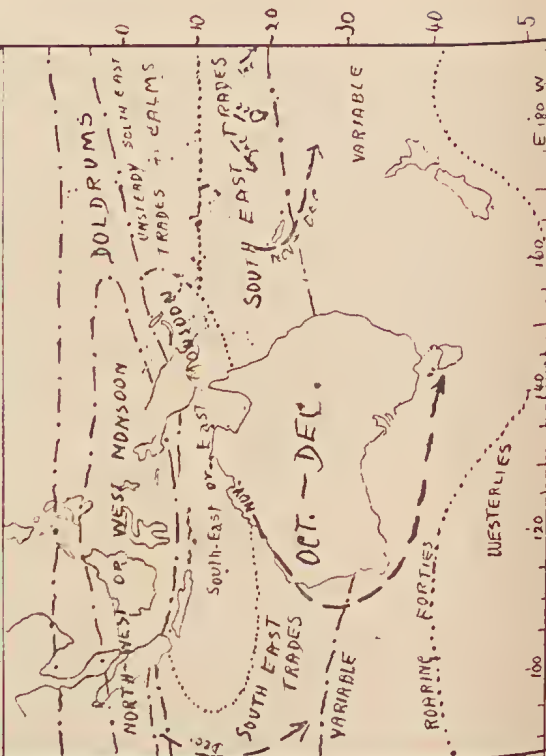 0
10
20
30
40
5
DOLDRUMS
UNSTEADY SOUTH EAST
TRADES & CALMS
NORTH-WEST OR WEST MONSOON
MONSOON
SOUTH EAST TRADES
SOUTH EAST TRADES
South-East or East
Nov.
OCT. - DEC.
Dec.
Dec.
SOUTH EAST
TRADES
VARIABLE
VARIABLE
ROARING FORTIES
WESTERLIES
100
120
140
160
E 180 W